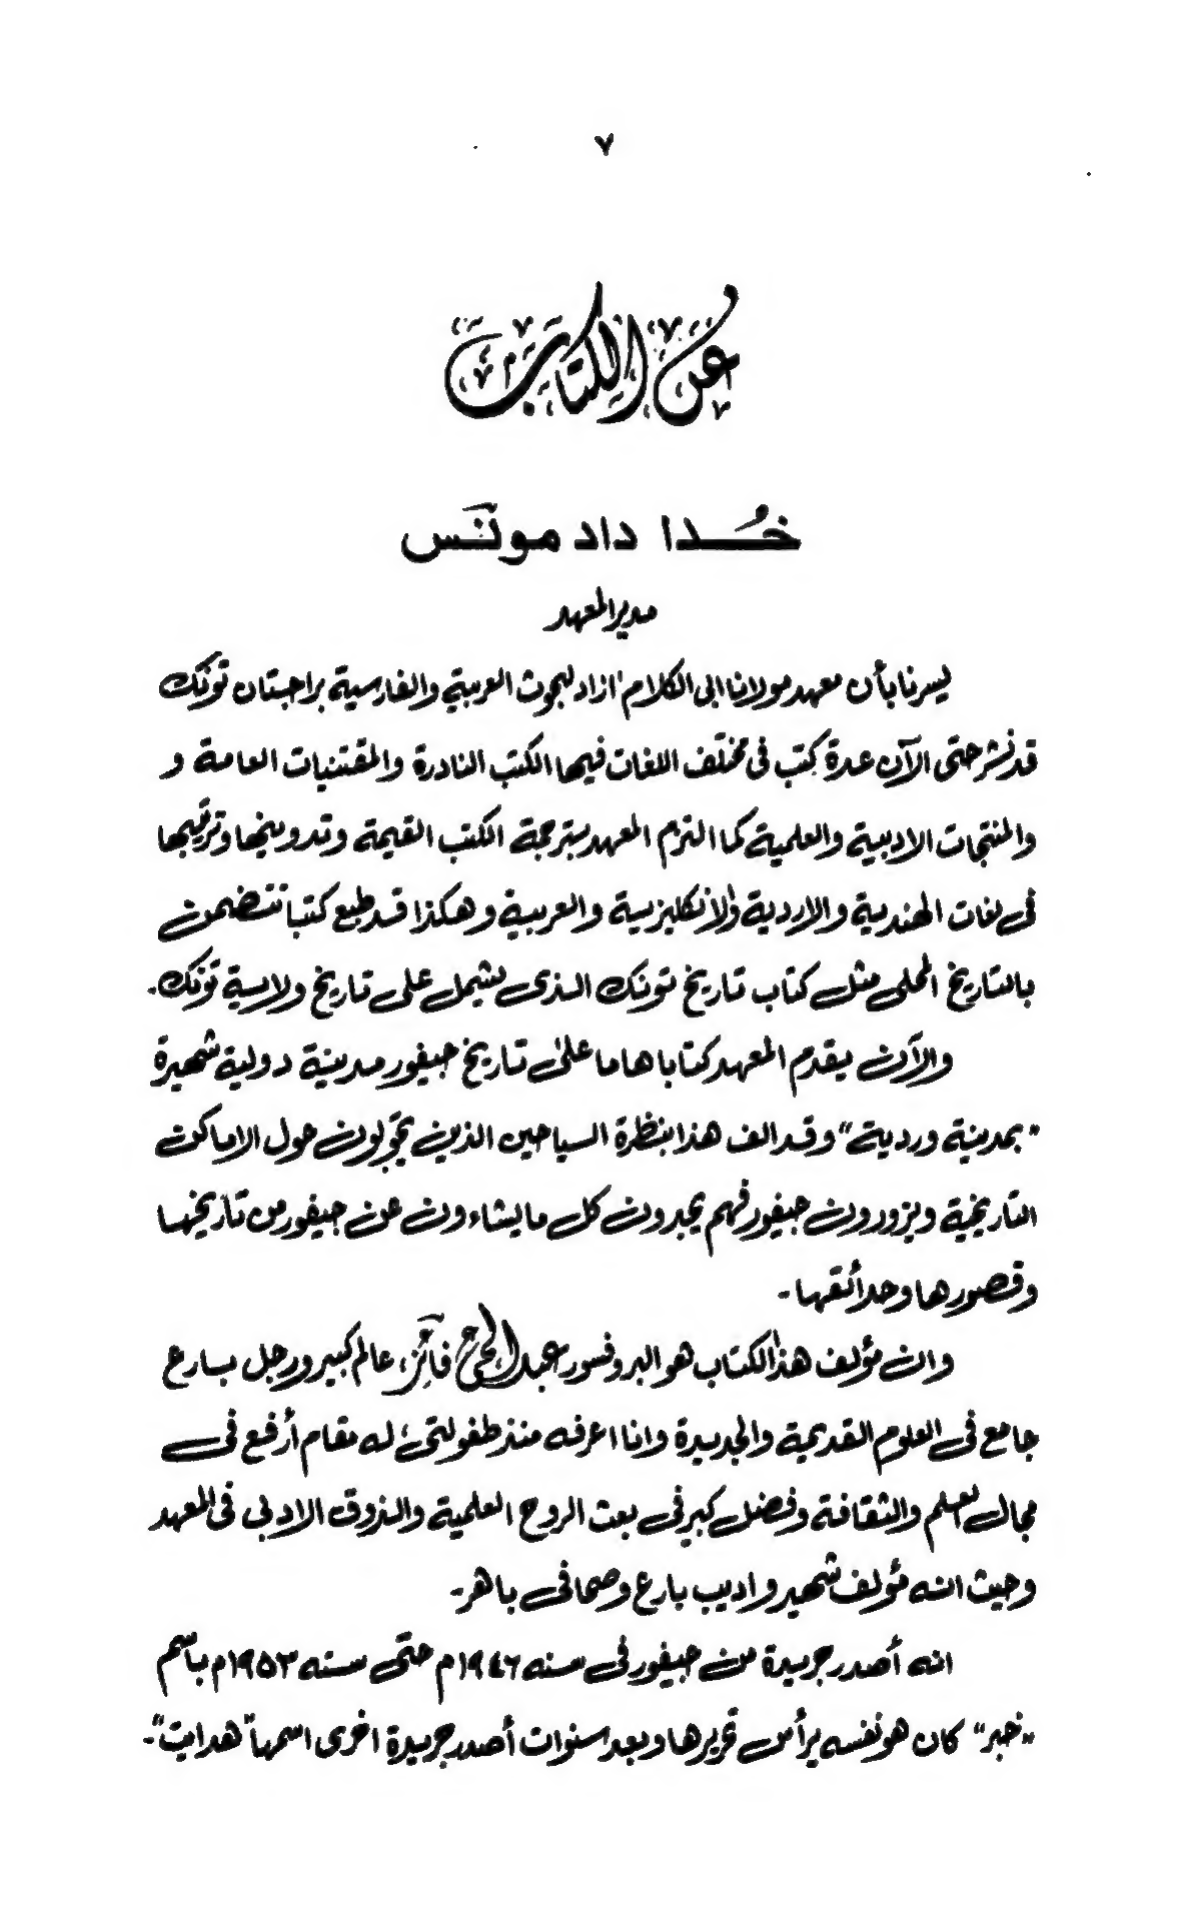 ٧
عن الكتاب
خُدا داد مونس
مدير المعهد
ليسرنا بأن معهد مولانا ابى الكلام ازاد لبحوث العربية والفارسية براجستان تونك
قد نشر حتى الآن عدة كتب فى مختلف اللغات فيها الكتب النادرة والمقتنيات العامة و
والمنتجات الادبية والعلمية كما التزم المعهد بترجمة الكتب القيمة وتدوينها وترتيبها
فى لغات الهندية والاردية والانكليزية والعربية وهكذا قد طبع كتبا تتضمن
بالتاريخ المحلى مثل كتاب تاريخ تونك الذى يشمل على تاريخ ولاية تونك.
والآن يقدم المعهد كتابا هاما على تاريخ جيفور مدينة دولية شهيرة
"بمدينة وردية" وقد الف هذا بنظرة السياحين الذين يتجولون حول الاماكن
التاريخية ويزورون جيفور فهم يجدون كل ما يشاءون عن جيفور من تاريخها
وقصورها وحدائقها-
وان مؤلف هذا الكتاب هو البروفسور عبد الحى فائز، عالم كبير ورجل بارع
جامع فى العلوم القديمة والجديدة وانا اعرفه منذ طفولتى، له مقام أرفع فى
مجال لعلم والثقافة وفضل كبير فى بعث الروح العلمية والذوق الادبى فى المعهد
وحيث انه مؤلف شهير واديب بارع وصحافى باهر-
انه أصدر جريدة من جيفور فى سنه ١٩٤٦م حتى سنه ١٩٥٣م باسم
"خبر" كان هو نفسه يرأس تحريرها وبعد سنوات أصدر جريدة اخرى اسمها "هدايت"-